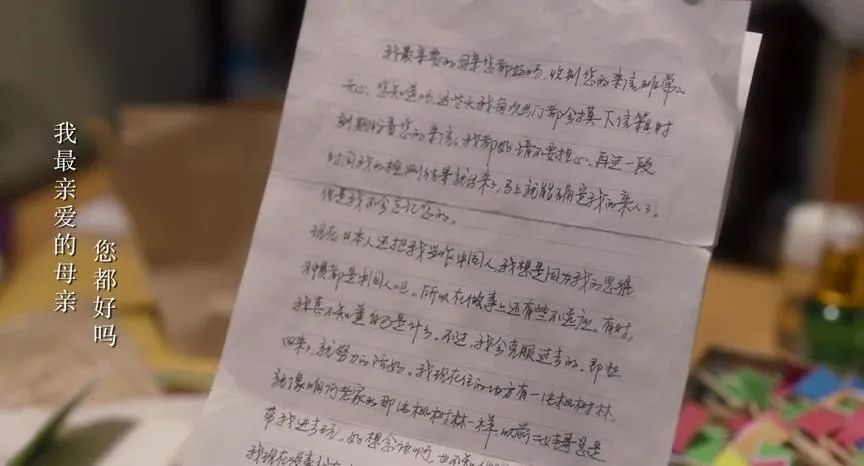 我最亲爱的母亲
您都好吗
我最亲爱的母亲您都好吗,收到您的来信非常
开心。您知道吗,这些天我每次出门都会摸一下信箱,时
刻期盼着您的来信。我都好,请不要担心。再过一段
时间我的检测结果就出来了,马上就能确定我的亲人了。
但是我不会忘记您的。
现在日本人还把我当作中国人,我想是因为我的思维
习惯都是中国人吧。所以在做事上还有些不适应。有时,
我真不知道自己是什么。不过,我会克服过去的,即然
回来了,就努力的活好。我现在住的地方有一片枫树林,
就像咱们老家的那片枫树林一样,以前二哥总是
带我进去玩。好想念他们
我现在